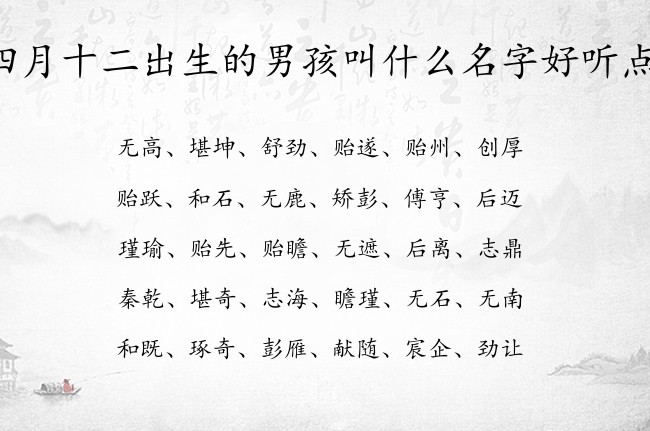 四月十二出生的男孩叫什么名字好听点
无高、堪坤、舒劲、贻遂、贻州、创厚
贻跃、和石、无鹿、矫彭、傅亨、后迈
瑾瑜、贻先、贻瞻、无遮、后离、志鼎
秦乾、堪奇、志海、瞻瑾、无石、无南
和既、琢奇、彭雁、献随、宸企、劲让